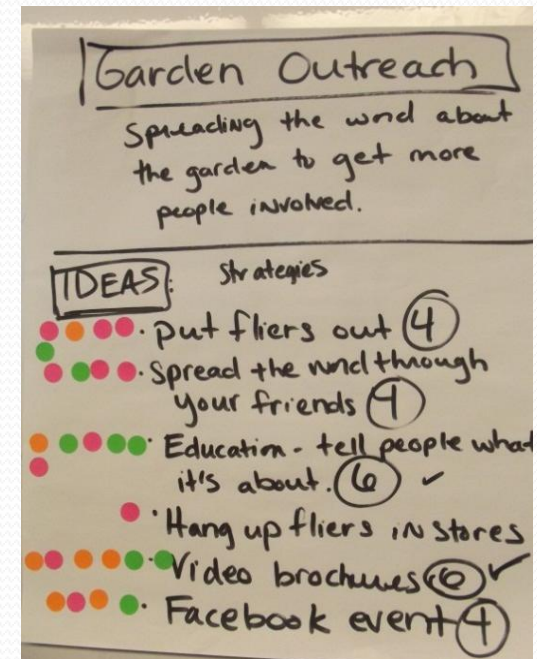 Garden Outreach
Spreading the word about
the garden to get more
people involved.
IDEAS: Strategies
· put fliers out 4
· Spread the word through
your friends 4
· Education - tell people what
it's about. 6 ✓
· Hang up fliers in stores
· Video brochures 6 ✓
· Facebook event 4